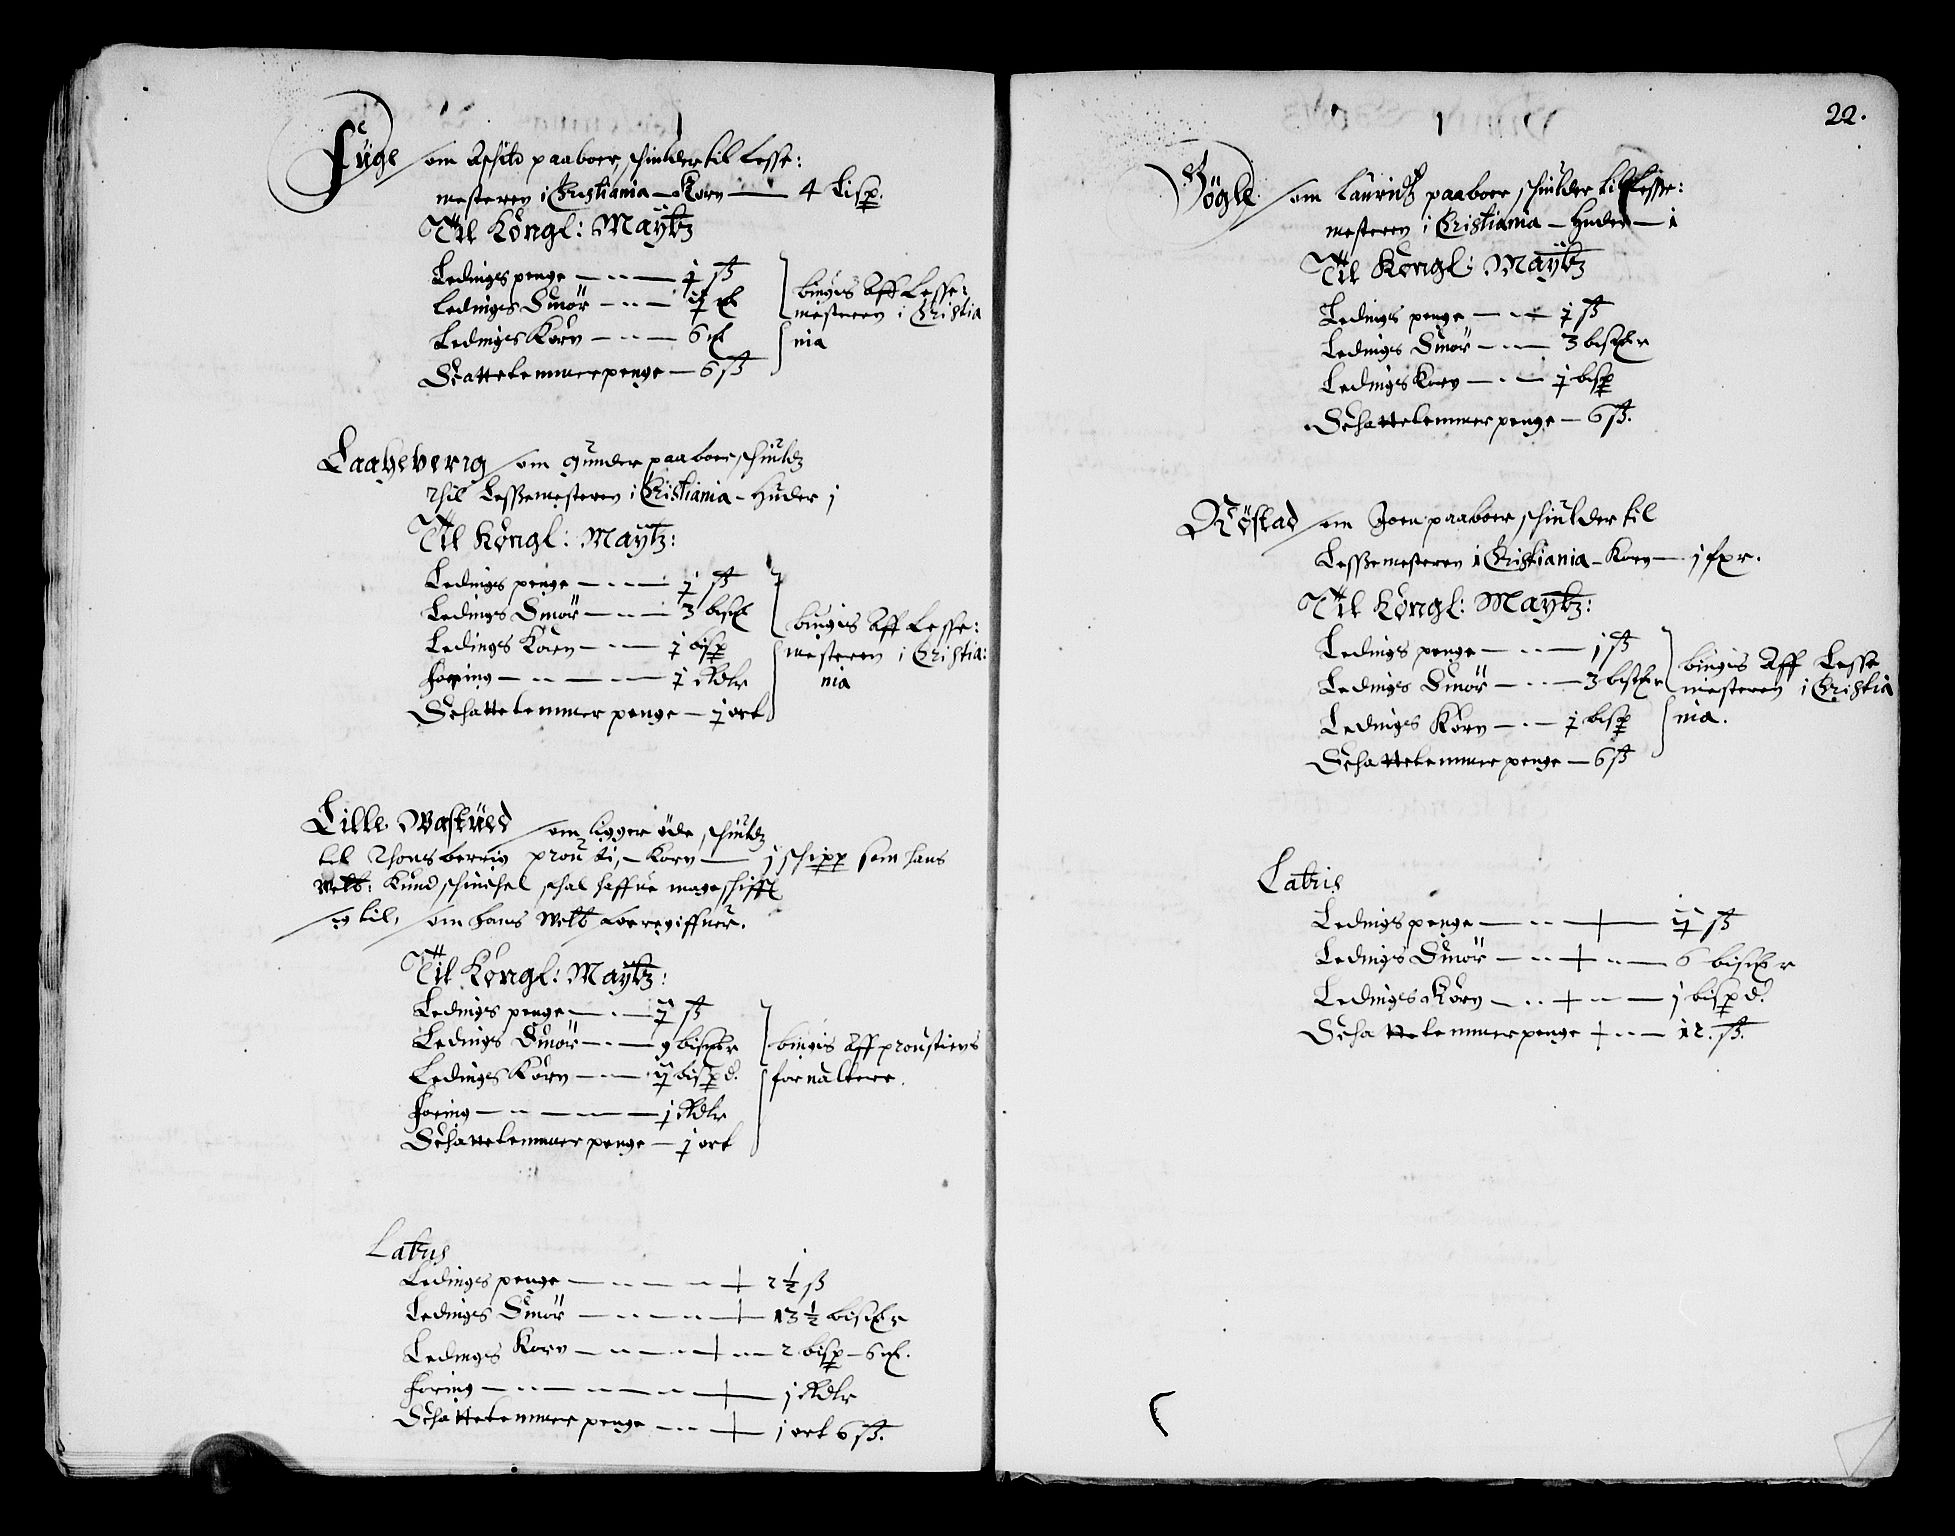 Füge / om Asild paaboer, schylder til Lesse:
mesteren i Christiania — Korn — 4 Lisp.
Til Kongl: Maytz
Ledings penge — j ß
Ledings Smør
Ledings Korn — 6
Schattekemmer penge — 6 ß
bügis Aff Lesse:
mesteren i Christia
nia
Laaheverig / om Gunder paaboer, schyldz
Thil Lessemesteren i Christiania – Huder j
Til Kongl: Maytz:
Ledings penge — j ß
Ledings Smør — 3 bismr
Ledings Korn — j bisp
Foring — j Rdlr
Schattekemmer penge — j ort
bügis Aff Lesse:
mesteren i Christia:
nia
Lille / om ligger øde, schyldz
til Thonsberrig prousti, – Korn — j schipp som hans
Welb: Knud haffue mageschifft
sig til, / om hans Welb
Til Kongl: Maytz:
Ledings penge — ij ß
Ledings Smør — 9 bismr
Ledings Korn — ij bispd.
Foring — j Rdlr
Schattekemmer penge — j ort
bügis Aff proustiens
foruallere.
Latus
Ledings penge — 2 ½ ß
Ledings Smør — 13 ½ bismr
Ledings Korn — 2 bisp – 6
Foring — j Rdlr
Schattekemmer penge — j ort 6 ß.
22.
Bøgle / om Lauridtz paaboer schylder til Lesse:
mesteren i Christiania – Huder — i
Til Kongl: Maytz
Ledings penge — j ß
Ledings Smør — 3 bismr
Ledings Korn — j bisp
Schattekemmer penge — 6 ß.
Røstad / om Joen paaboer schylder til
Lessemesteren i Christiania – Korn — j fxr.
Til Kongl: Maytz:
Ledings penge — j ß
Ledings Smør — 3 bismr
Ledings Korn — j bisp
Schattekemmer penge — 6 ß
bügis Aff Lesse
mesteren i Christia
nia.
Latus
Ledings penge — ij ß
Ledings Smør — 6 bismr
Ledings Korn — j bispd.
Schattekemmer penge — 12. ß.